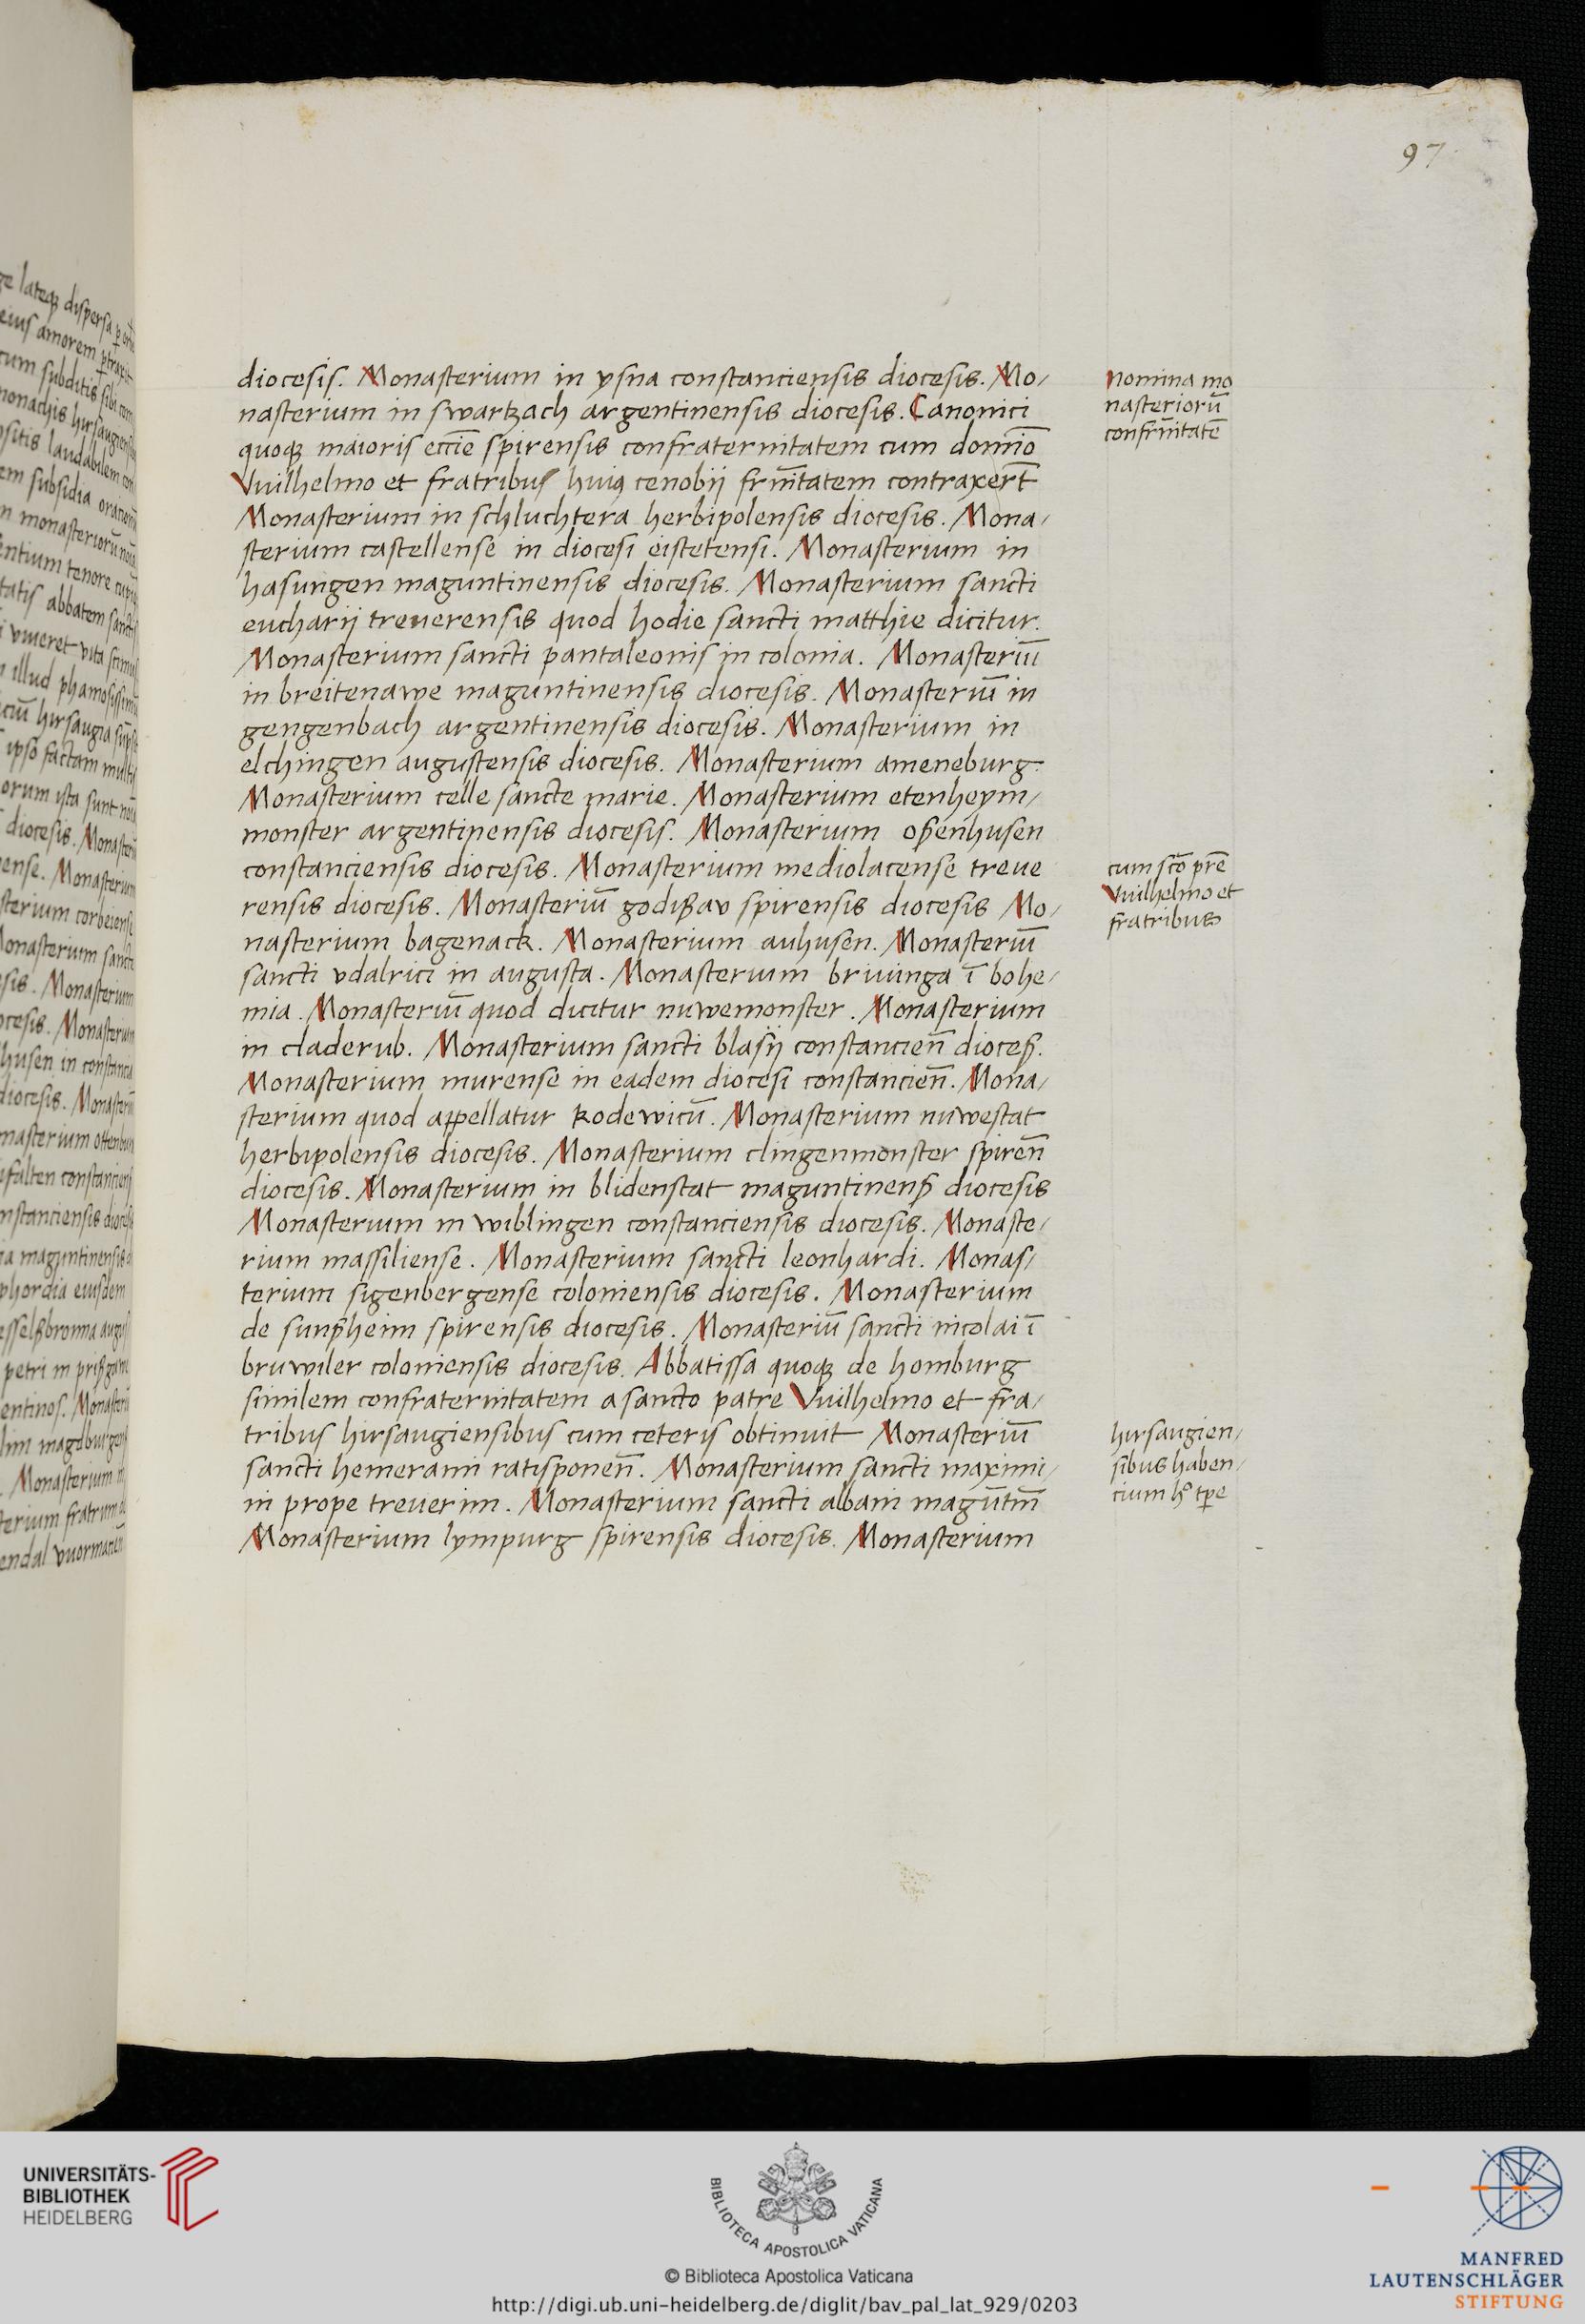 97
diocesis. Monasterium in ysna constanciensis diocesis. Mo/
nasterium in swartzach argentinensis diocesis. Canonici
quoqꝫ maioris eccīe spirensis confraternitatem cum domīo
Vuilhelmo et fratribus huiꝰ cenobij frn̄itatem contraxer̄t
Monasterium in schluchtera herbipolensis diocesis. Mona/
sterium castellense in diocesi eistetensi. Monasterium in
hasungen maguntinensis diocesis. Monasterium sancti
eucharij treuerensis quod hodie sancti matthie dicitur.
Monasterium sancti pantaleonis in colonia. Monasteriū
in breitenawe maguntinensis diocesis. Monasteriū in
gengenbach argentinensis diocesis. Monasterium in
elchingen augustensis diocesis. Monasterium ameneburg.
Monasterium celle sancte marie. Monasterium etenheym/
monster argentinensis diocesis. Monasterium oßenhusen
constanciensis diocesis. Monasterium mediolacense treue
rensis diocesis. Monasteriū godißav spirensis diocesis Mo/
nasterium bagenack. Monasterium auhusen. Monasteriū
sancti vdalrici in augusta. Monasterium briuinga ī bohe/
mia. Monasteriū quod dicitur nuwemonster. Monasterium
in claderub. Monasterium sancti blasij constancien̄ dioceß.
Monasterium murense in eadem diocesi constancien̄. Mona/
sterium quod appellatur Rodewicū. Monasterium nuwestat
herbipolensis diocesis. Monasterium clingenmonster spiren̄
diocesis. Monasterium in blidenstat maguntinenß diocesis
Monasterium in wiblingen constanciensis diocesis. Monaste/
rium massiliense. Monasterium sancti leonhardi. Monas/
terium sigenbergense coloniensis diocesis. Monasterium
de sunßheim spirensis diocesis. Monasteriū sancti nicolai ī
bruwiler coloniensis diocesis. Abbatissa quoqꝫ de homburg
similem confraternitatem a sancto patre Vuilhelmo et fra/
tribus hirsaugiensibus cum ceteris obtinuit Monasteriū
sancti hemerami ratisponen̄. Monasterium sancti maximi/
ni prope treuerim. Monasterium sancti albani magūtin̄
Monasterium lympurg spirensis diocesis. Monasterium
Nomina mo
nasteriorū
confrn̄itatē
cum sc̄o prē
Vuilhelmo et
fratribus
hirsaugien/
sibus haben/
cium hͦ tꝑe
UNIVERSITÄTS-
BIBLIOTHEK
HEIDELBERG
BIBLIOTECA APOSTOLICA VATICANA
© Biblioteca Apostolica Vaticana
http://digi.ub.uni-heidelberg.de/diglit/bav_pal_lat_929/0203
MANFRED
LAUTENSCHLÄGER
STIFTUNG